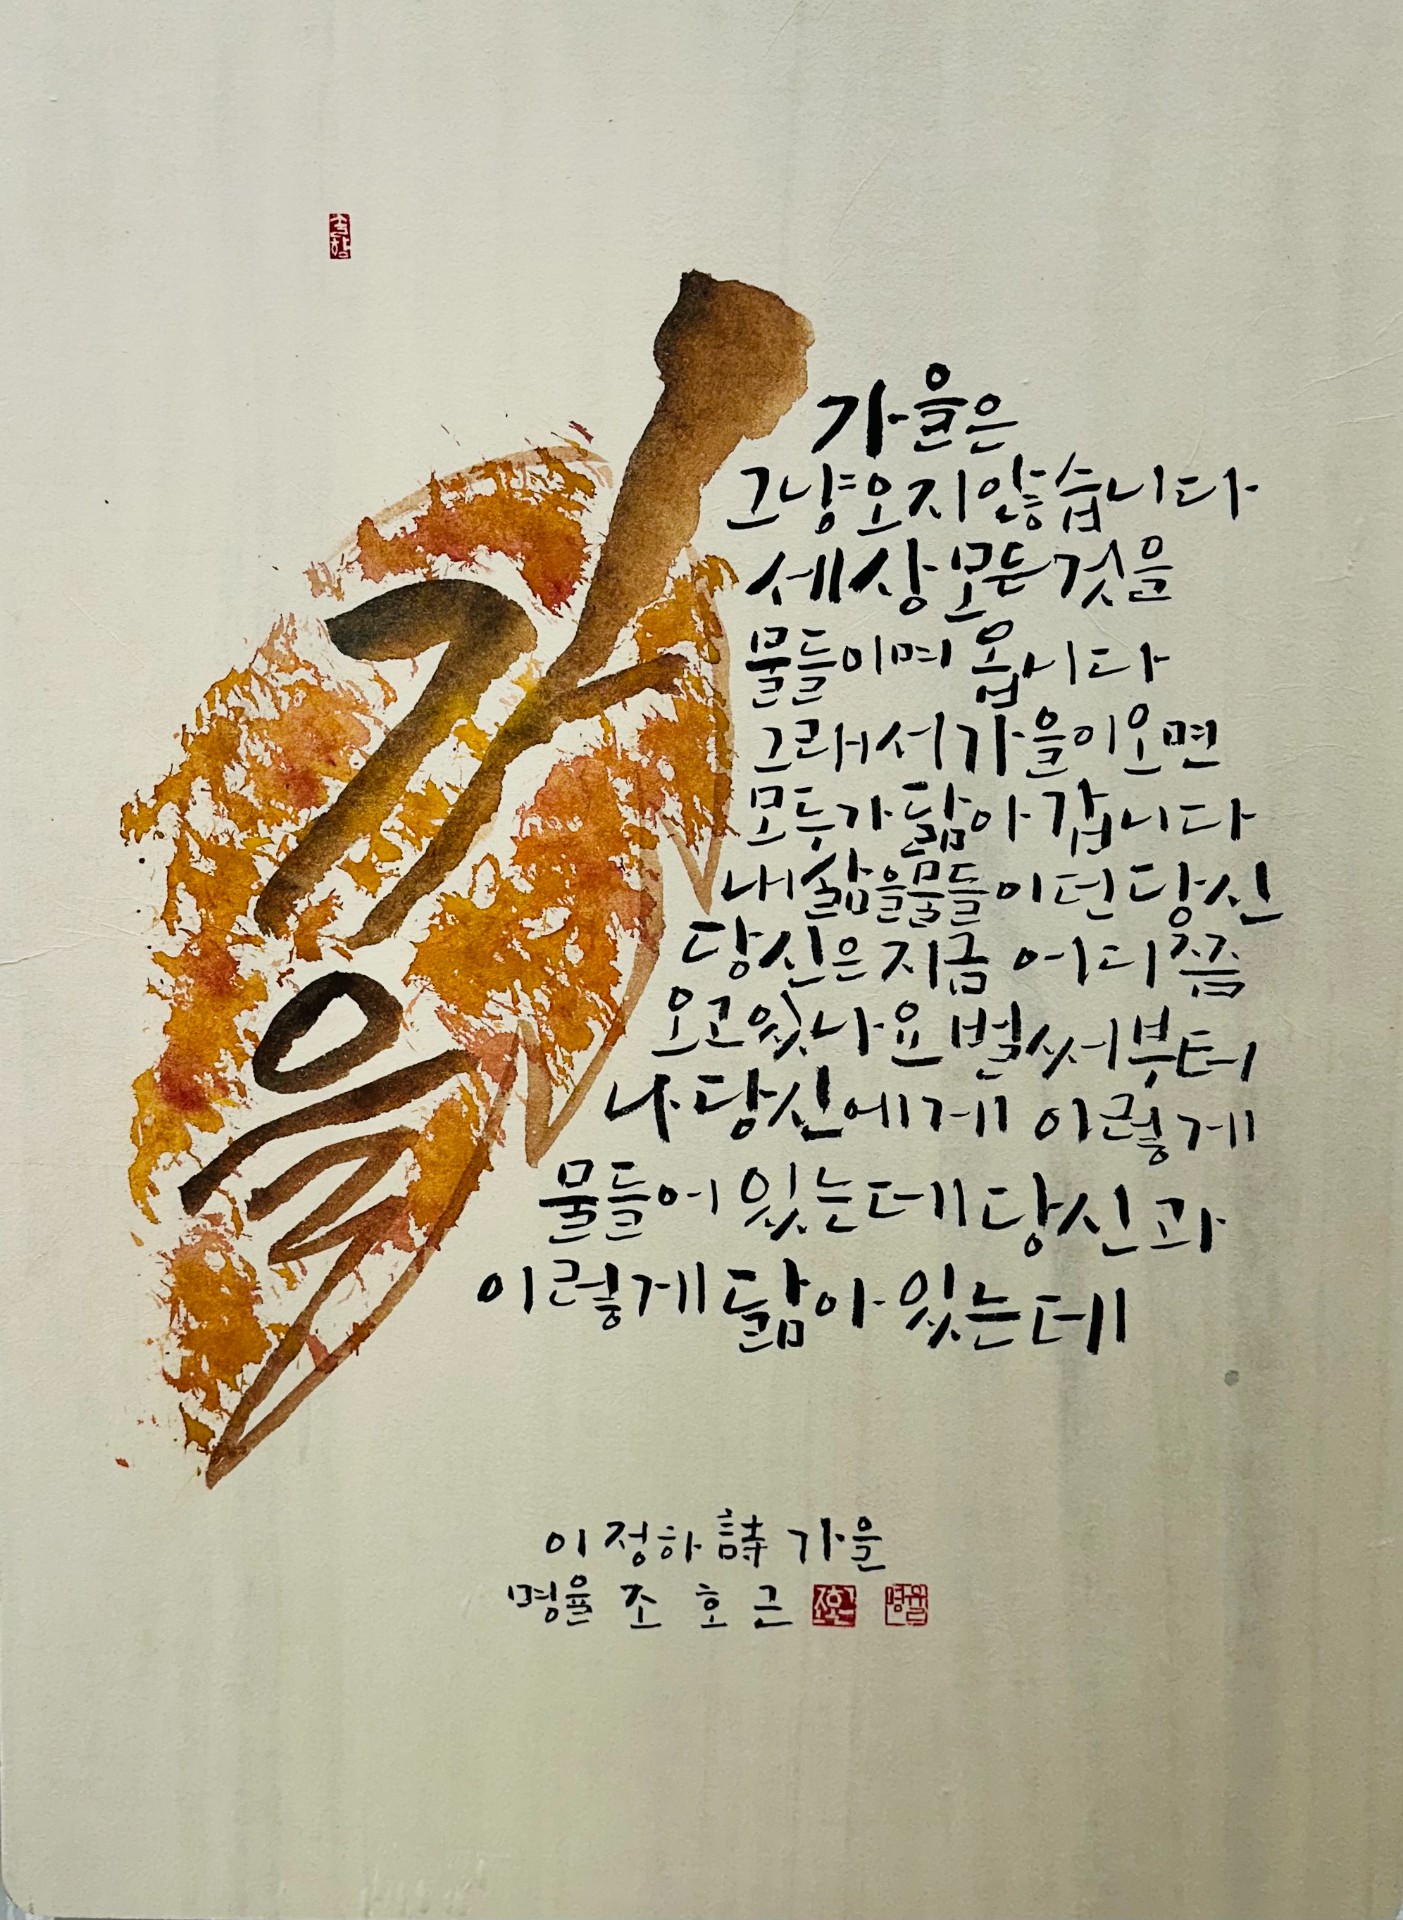 가을
가을은
그냥 오지 않습니다
세상 모든 것을
물들이며 옵니다
그래서 가을이 오면
모두가 닮아 갑니다
내 삶을 물들이던 당신
당신은 지금 어디쯤
오고 있나요 벌써부터
나 당신에게 이렇게
물들어 있는데 당신과
이렇게 닮아 있는데
이정하 詩 가을
명율 조호근